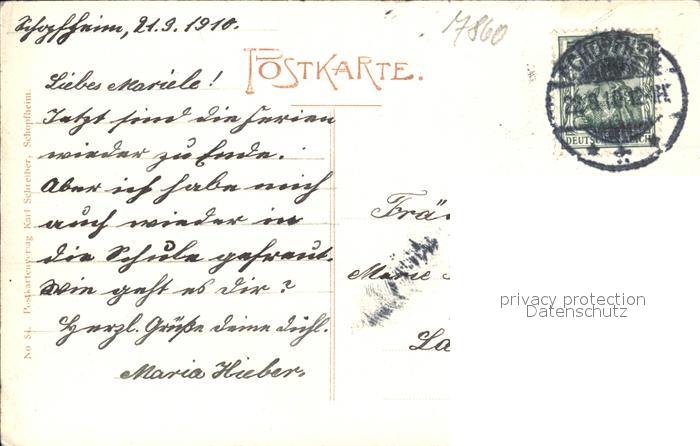 Schopfheim, 21.9.1910.
17860
POSTKARTE.
Liebes Mariele!
Jetzt sind die Ferien
wieder zu Ende.
Aber ich habe mich
auch wieder in
die Schule gefreut.
Wie geht es Dir?
Herzl. Grüße deine dichl.
Maria Hieber.
Frä
Marie
La
DEUTSCHES REICH
privacy protection
Datenschutz
No 84. Postkartenverlag Karl Schreiber, Schopfheim.